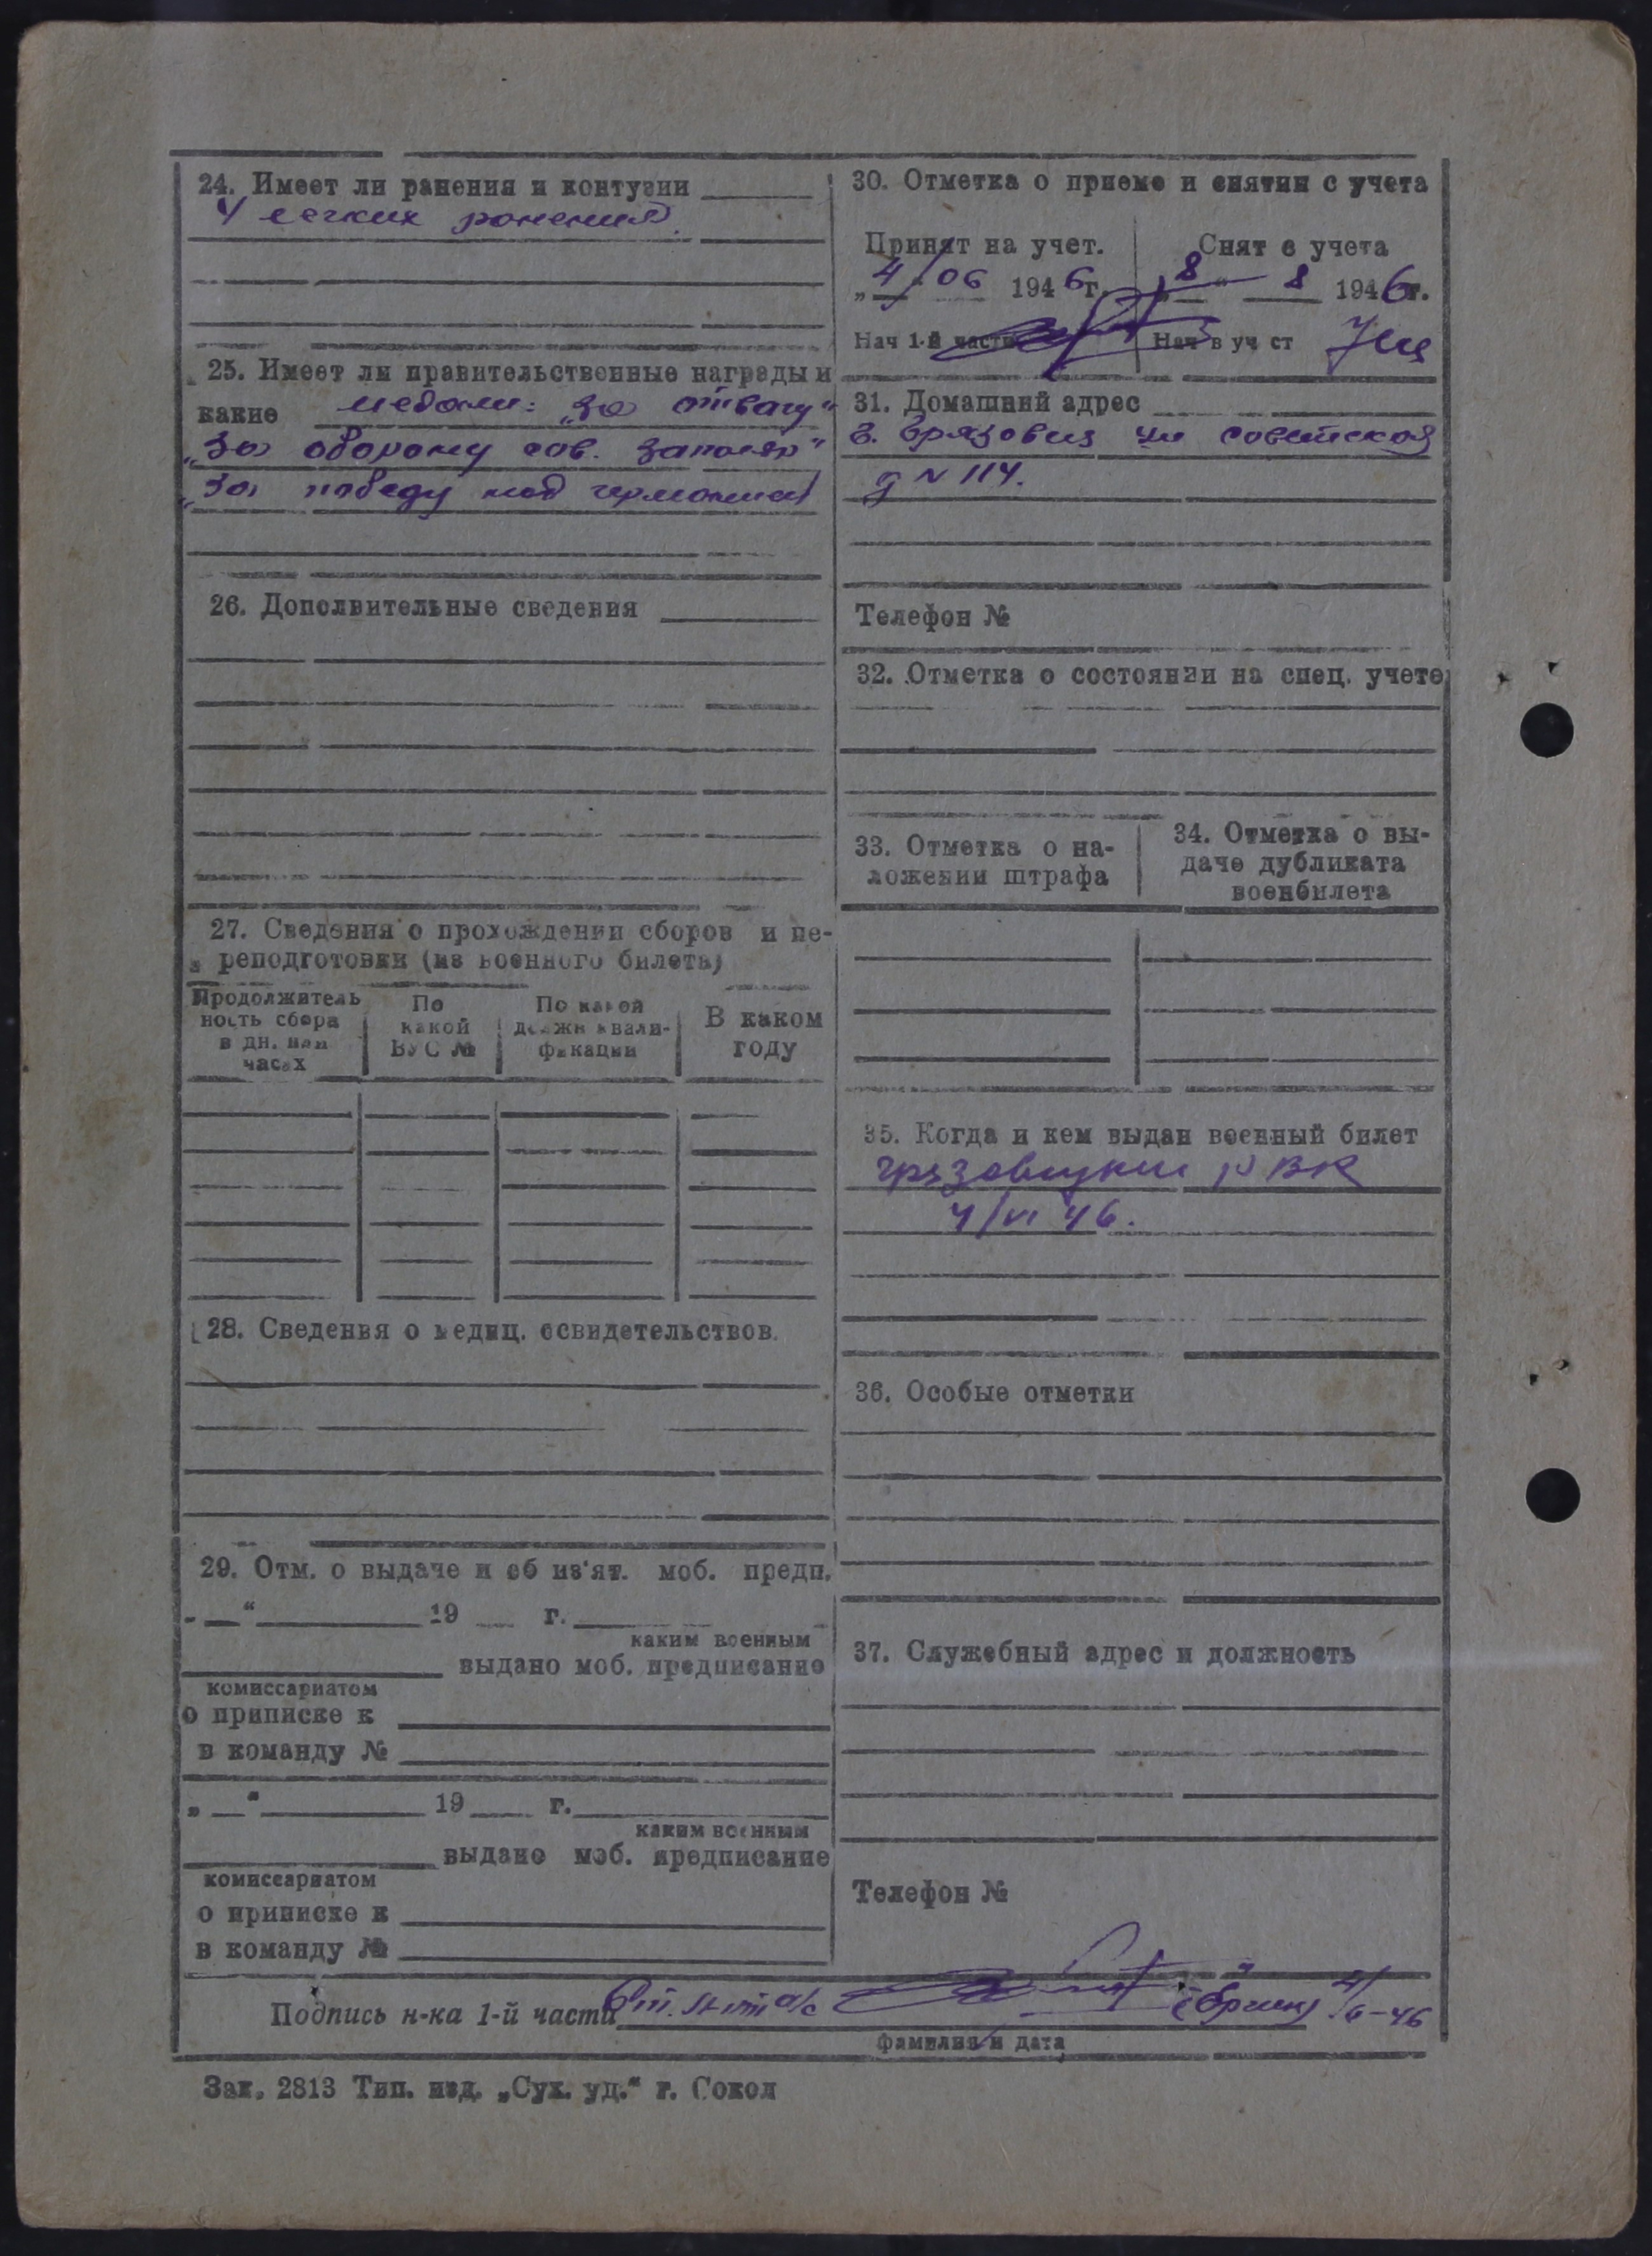 24. Имеет ли ранения и контузии
4 легких ранения.
25. Имеет ли правительственные награды и
какие медали: „За отвагу“
„За оборону сов. заполяр“
„За победу над германией
26. Дополнительные сведения
27. Сведения о прохождении сборов и пе-
реподготовки (из военного билета)
Продолжитель
ность сбора
в дн. или
часах
По
какой
ВУС №
По какой
должн квали-
фикации
В каком
году
28. Сведения о медиц. освидетельствов.
29. Отм. о выдаче и об из'ят. моб. предп.
„ “ 19 г.
каким военным
выдано моб. предписание
комиссариатом
о приписке к
в команду №
„ “ 19 г.
каким военным
выдано моб. предписание
комиссариатом
о приписке к
в команду №
30. Отметка о приеме и снятии с учета
Принят на учет.
„4/“ 06 1946г.
Нач 1-й части
Снят с учета
„8“ 8 1946г.
Нач в уч ст
31. Домашний адрес
г. Грязовец ул советская
д N 114.
Телефон №
32. Отметка о состоянии на спец. учете
33. Отметка о на-
ложении штрафа
34. Отметка о вы-
даче дубликата
военбилета
35. Когда и кем выдан военный билет
грязовецким РВК
4/VI 46.
36. Особые отметки
37. Служебный адрес и должность
Телефон №
Подпись н-ка 1-й части 4/6-46
фамилия и дата
Зак. 2813 Тип. изд. „Сух. уд.“ г. Сокол